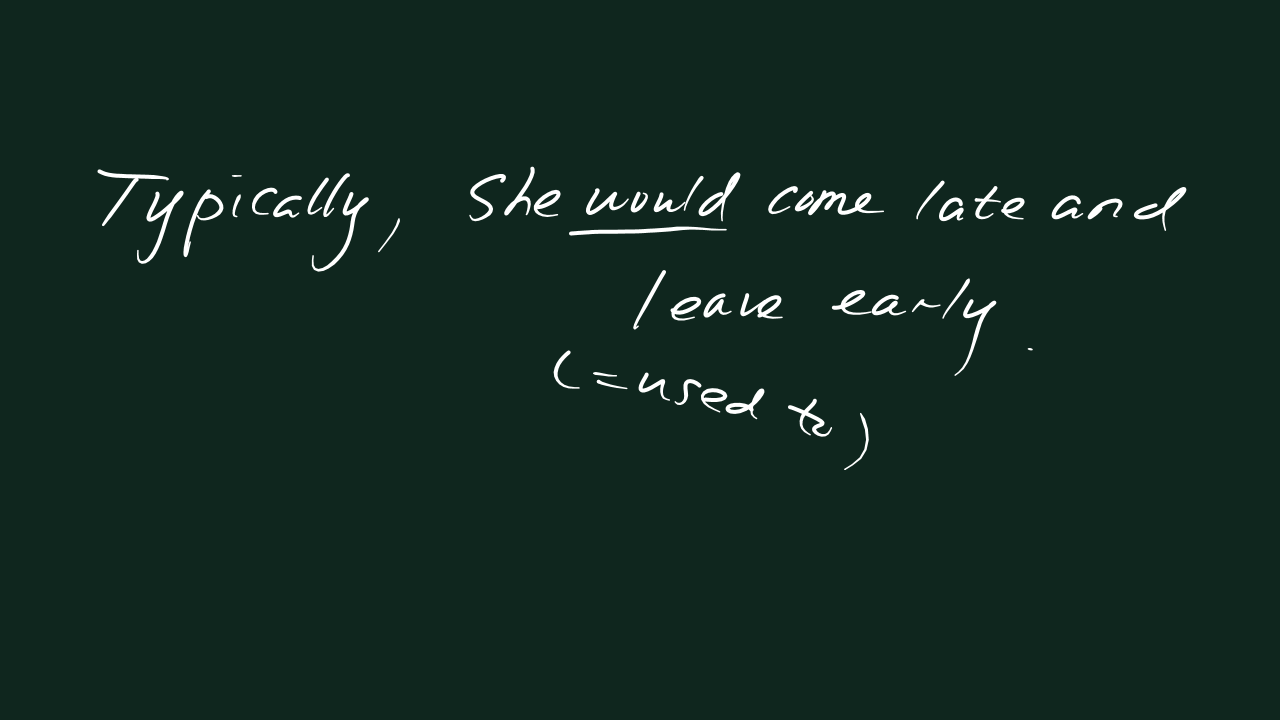 Typically, She would come late and
leave early.
(= used to)